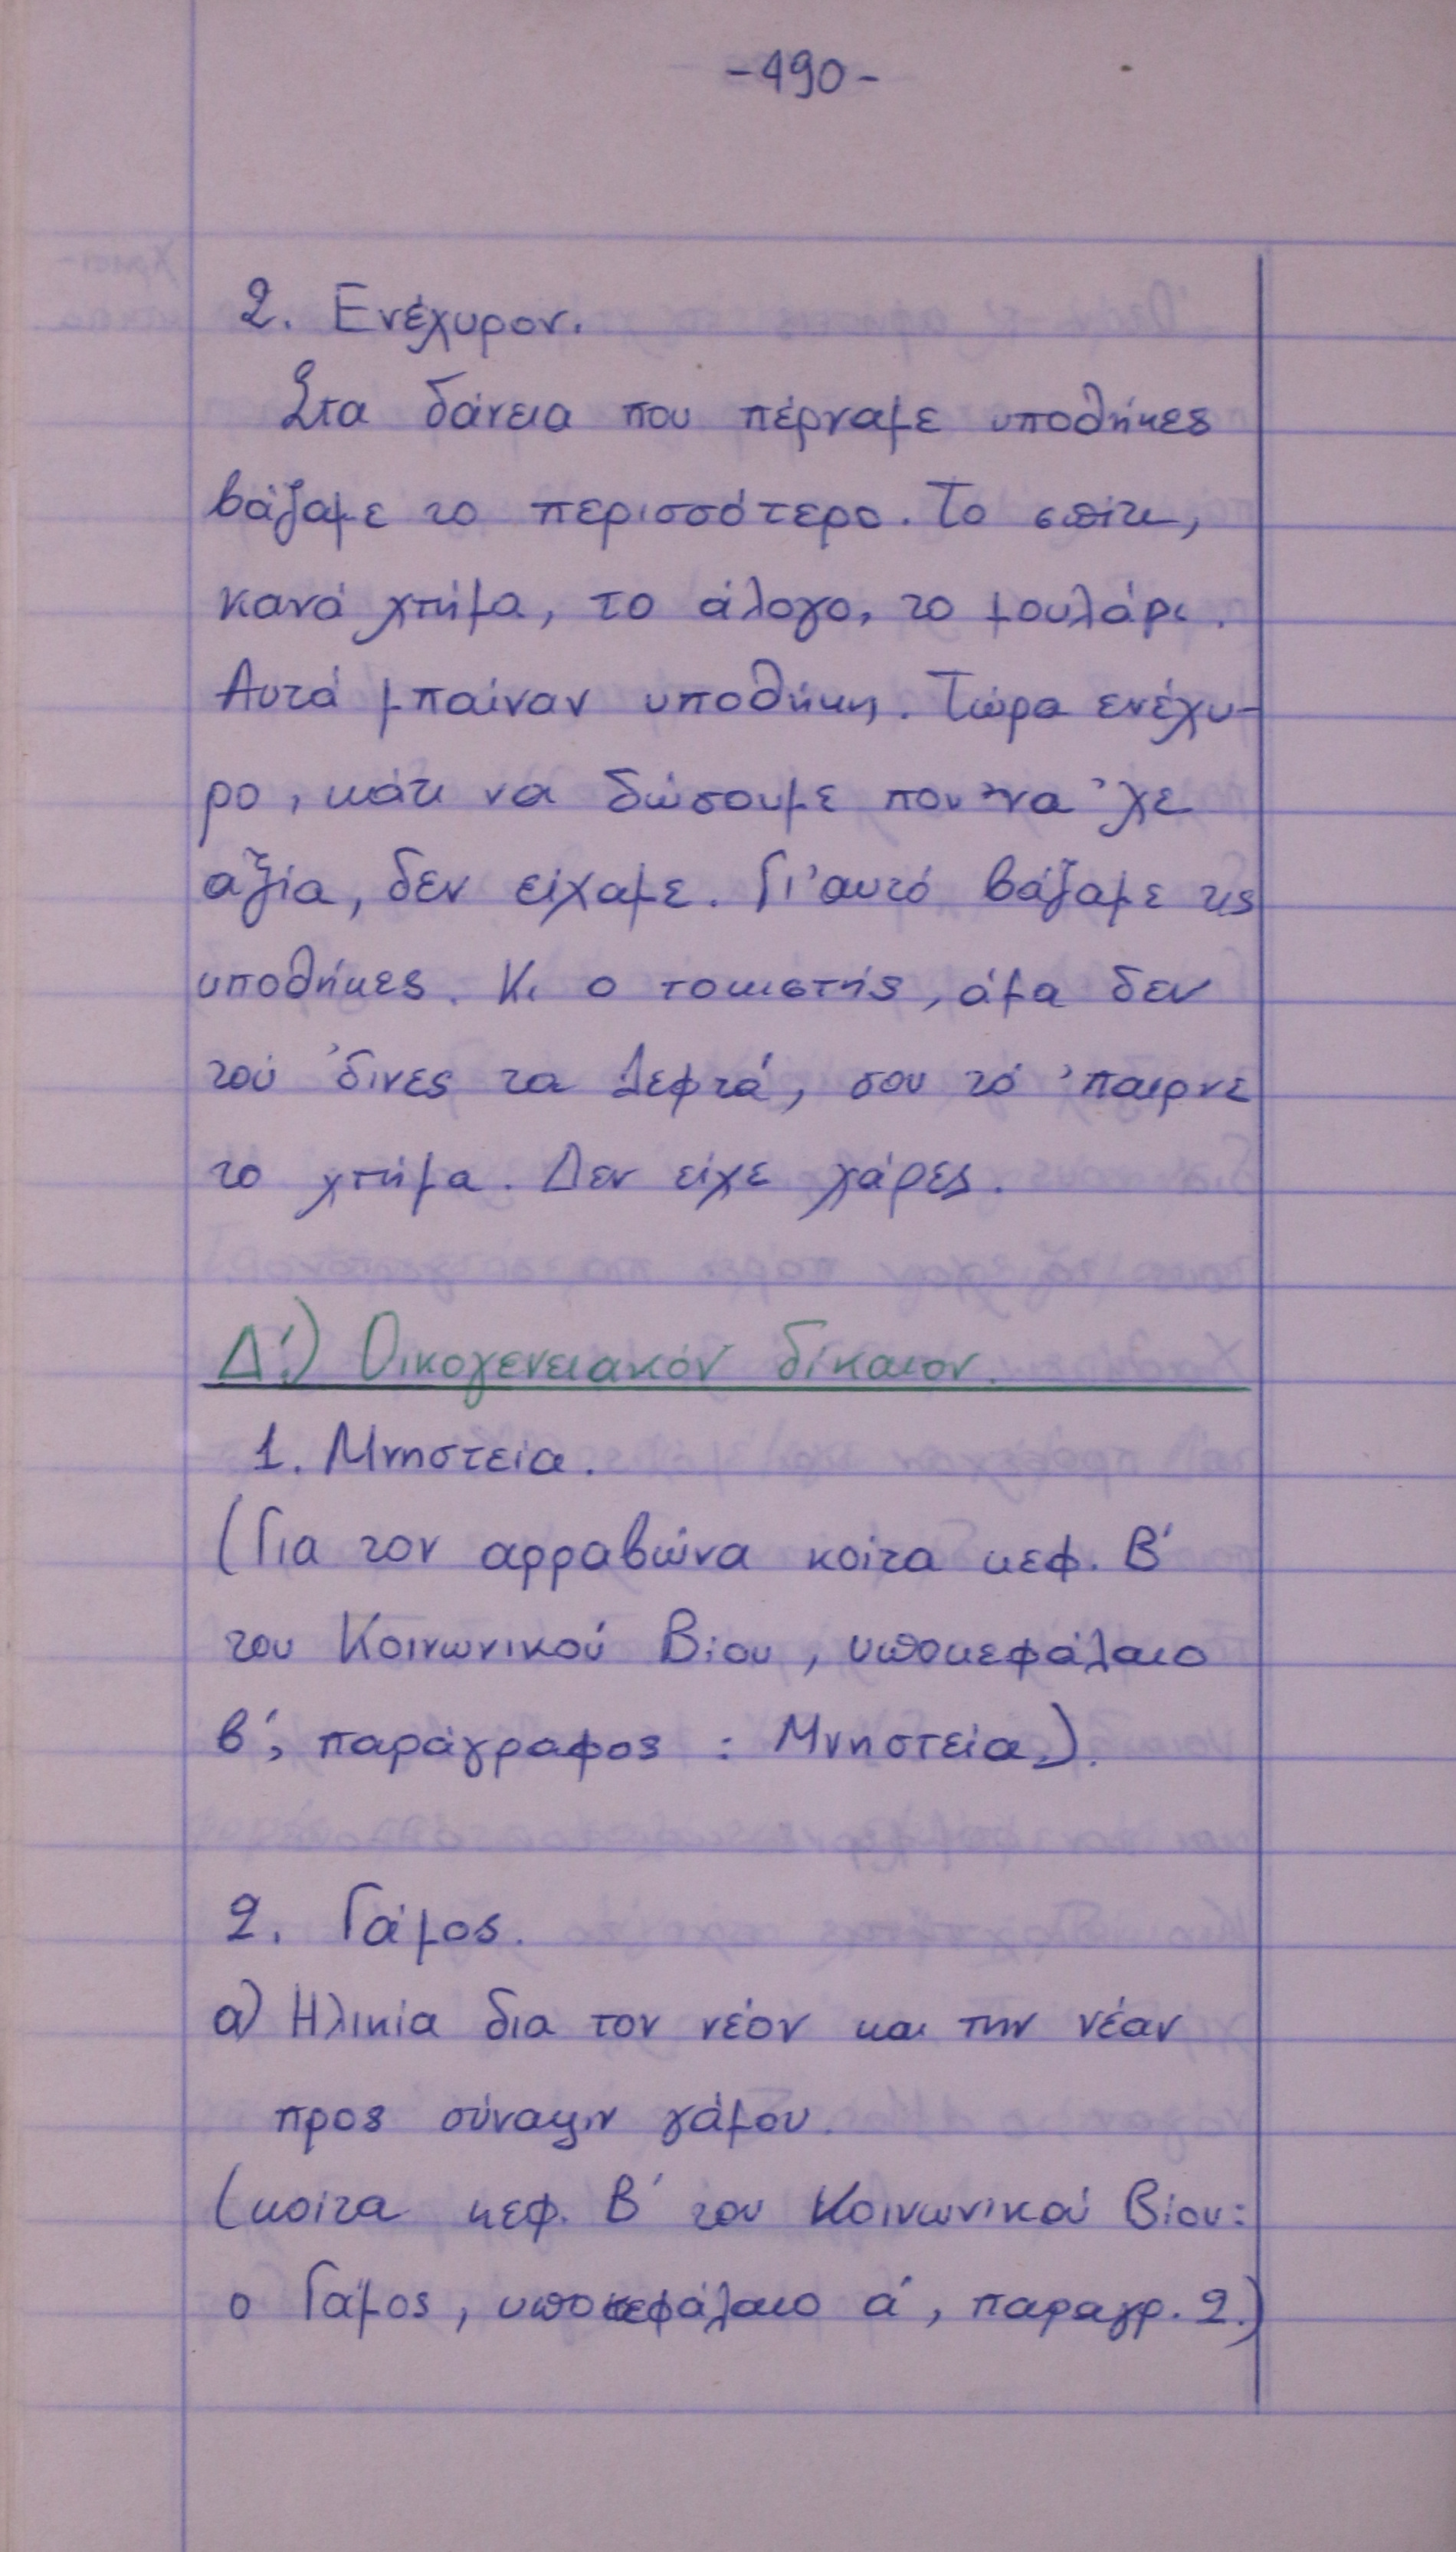 -490-
2. Ενέχυρον.
Στα δάνεια που πέρναμε υποθήκες
βάζαμε το περισσότερο. Το σπίτι,
κανά χτήμα, το άλογο, το μουλάρι.
Αυτά μπαίναν υποθήκη. Τώρα ενέχυ-
ρο, κάτι να δώσουμε που να 'χε
αξία, δεν είχαμε. Γι' αυτό βάζαμε τις
υποθήκες. Κι ο τοκιστής, άμα δεν
τού 'δινες τα λεφτά, σου τό 'παιρνε
το χτήμα. Δεν είχε χάρες.
Δ'.) Οικογενειακόν δίκαιον.
1. Μνηστεία.
(Για τον αρραβώνα κοίτα κεφ. Β'
του Κοινωνικού Βίου, υποκεφάλαιο
β', παράγραφος : Μνηστεία.).
2. Γάμος.
α) Ηλικία δια τον νέον και την νέαν
προς σύναψιν γάμου.
(κοίτα κεφ. Β' του Κοινωνικού Βίου:
ο Γάμος, υποκεφάλαιο α', παραγρ. 2.)